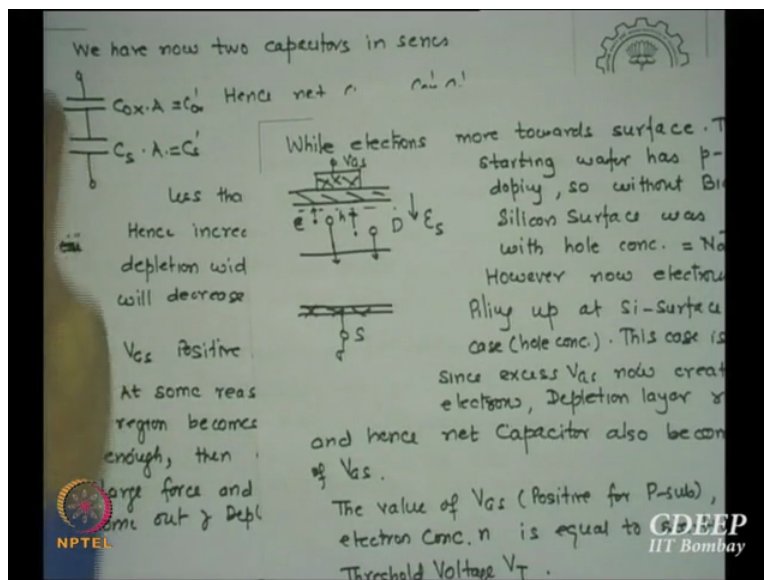 We have now two capacitors in series
Cox.A = C'ox Hence net
Cs.A = C's
less tha
Hence increc
depletion wid
will decrease
VGS Positive
At some reas
region becomes
enough, then
large force and
ome out
While electrons more towards surface. T
VGS
starting wafer has p-
doping, so without Bia
e h D Es
Silicon Surface was
with hole conc. = Na
However now electrons
Piling up at Si-Surface
S
case (hole conc.). This case is
since excess VGS now creat
electrons, Depletion layer
and hence net Capacitor also becom
of VGS.
The value of VGS (Positive for P-sub),
electron Conc. n is equal to
Threshold Voltage VT.
NPTEL
CDEEP
IIT Bombay